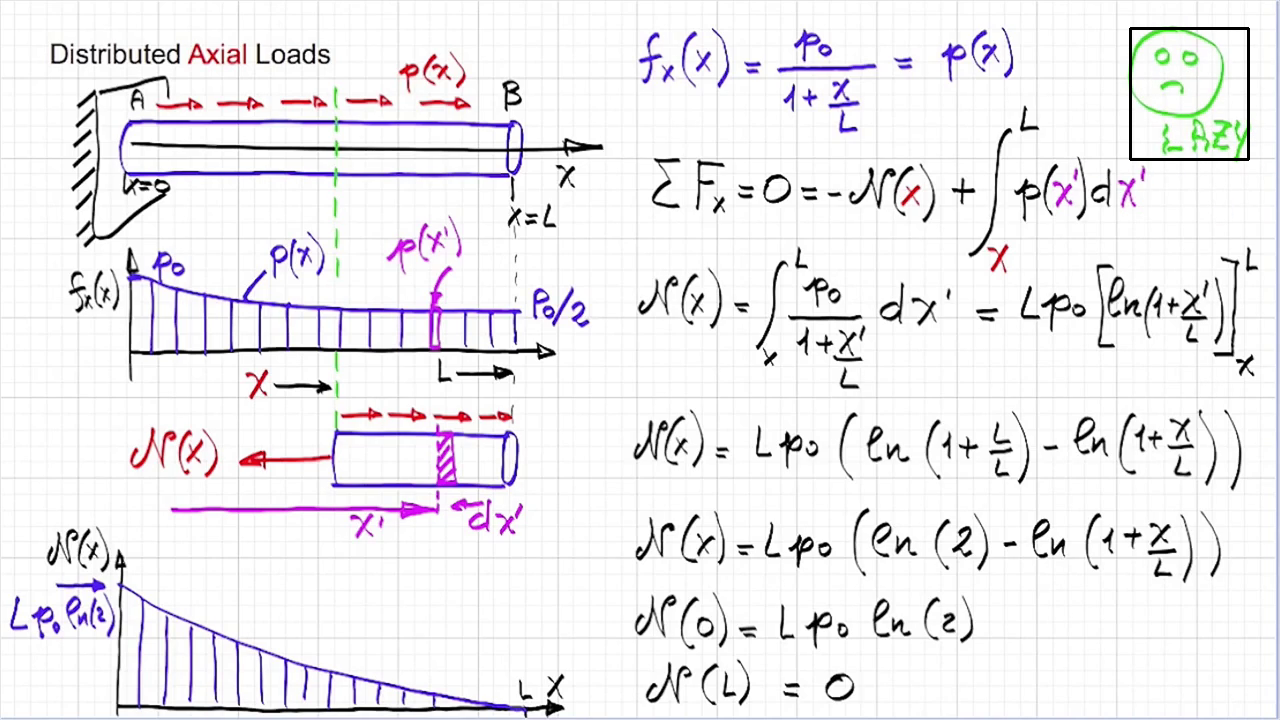 Distributed Axial Loads
A
p(x)
B
x=0
x
x=L
fx(x)
p0
p(x)
p(x')
p0/2
x
L
N(x)
x'
dx'
N(x)
Lp0 ln(2)
L x
fx(x) = p0/(1+x/L) = p(x)
LAZY
ΣFx = 0 = -N(x) + ∫_x^L p(x')dx'
N(x) = ∫_x^L p0/(1+x'/L) dx' = Lp0 [ln(1+x'/L)]_x^L
N(x) = Lp0 (ln(1+L/L) - ln(1+x/L))
N(x) = Lp0 (ln(2) - ln(1+x/L))
N(0) = Lp0 ln(2)
N(L) = 0